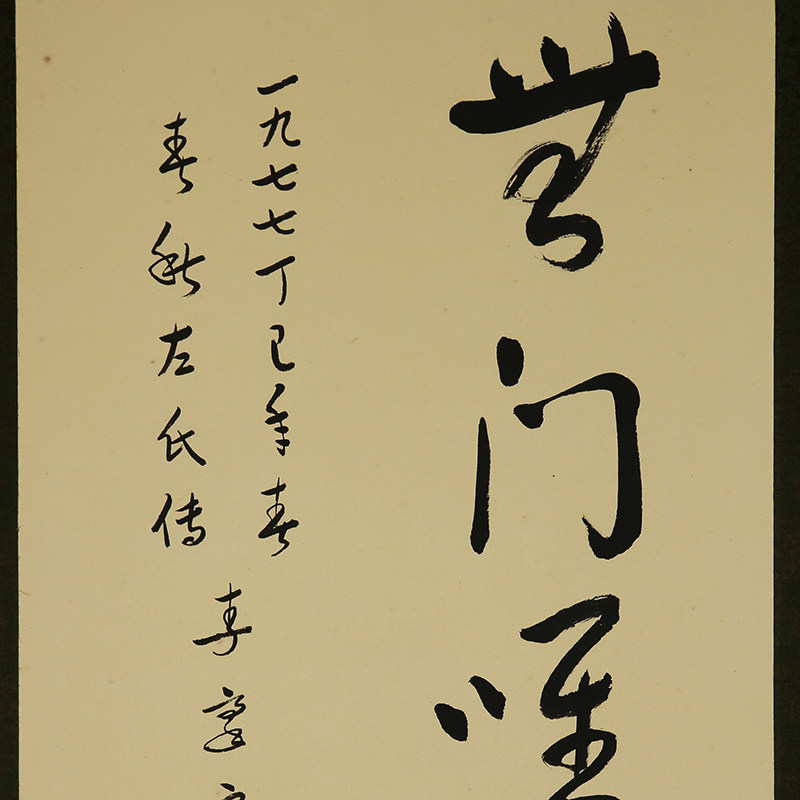 無门唯
一九七七丁巳年春
春秋左氏传